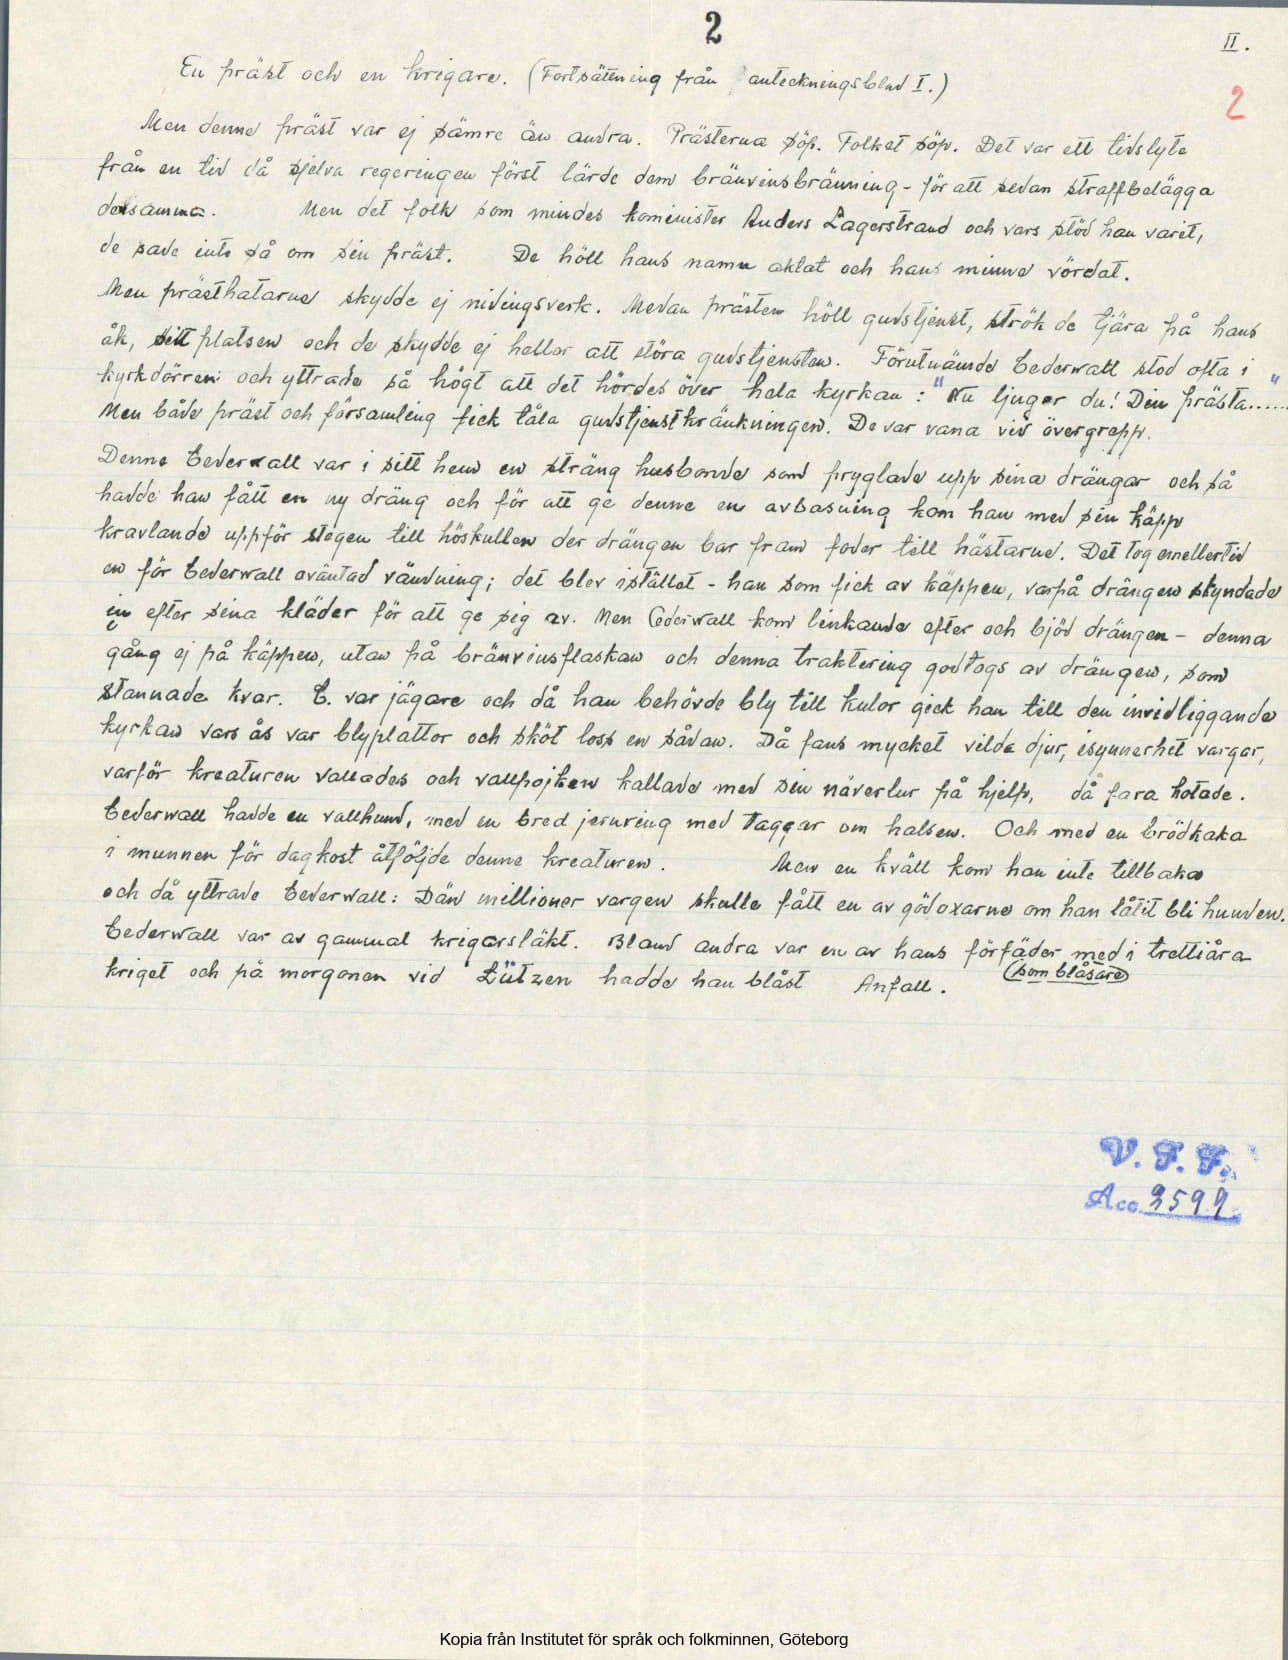 2
II.
2
En präst och en krigare. (Fortsättning från anteckningsblad I.)
Men denne präst var ej sämre än andra. Prästerna söp. Folket söp. Det var ett tidslyte
från en tid då sjelva regeringen först lärde dem bränvinsbränning - för att sedan straffbelägga
densamma. Men det folk som mindes kominister Anders Lagerstrand och vars stöd han varit,
de sade inte så om sin präst. De höll hans namn aktat och hans minne vördat.
Men prästhatarne skydde ej nidingsverk. Medan prästen höll gudstjenst, strök de tjära på hans
åk, sittplatsen och de skydde ej heller att störa gudstjensten. Förutnämde Cederwall stod ofta i
kyrkdörren och yttrade så högt att det hördes över hela kyrkan: "Nu ljuger du! Din prästa......"
Men både präst och församling fick tåla gudstjenstkränkningen. De var vana vid övergrepp.
Denne Cederwall var i sitt hem en sträng husbonde som pryglade upp sina drängar och så
hadde han fått en ny dräng och för att ge denne en avbasning kom han med sin käpp
kravlande uppför stegen till höskullen der drängen bar fram foder till hästarne. Det tog emellertid
en för Cederwall oväntad vändning; det blev istället - han som fick av käppen, varpå drängen skyndade
in efter sina kläder för att ge sig av. Men Cederwall kom linkande efter och bjöd drängen - denna
gång ej på käppen, utan på bränvinsflaskan och denna traktering godtogs av drängen, som
stannade kvar. C. var jägare och då han behövde bly till kulor gick han till den invidliggande
kyrkan vars ås var blyplattor och sköt loss en sådan. Då fans mycket vilda djur, isynnerhet vargar,
varför kreaturen vallades och vallpojken kallade med sin näverlur på hjelp, då fara hotade.
Cederwall hadde en vallhund, med en bred jernring med taggar om halsen. Och med en brödkaka
i munnen för dagkost åtföljde denne kreaturen. Men en kväll kom han inte tillbaka
och då yttrade Cederwall: Dän millioner vargen skulle fått en av gödoxarne om han låtit bli hunden.
Cederwall var av gammal krigarsläkt. Bland andra var en av hans förfäder med i trettiåra
kriget och på morgonen vid Lützen hadde han blåst Anfall. (som blåsare)
V. F. F.
Acc. 2599
Kopia från Institutet för språk och folkminnen, Göteborg